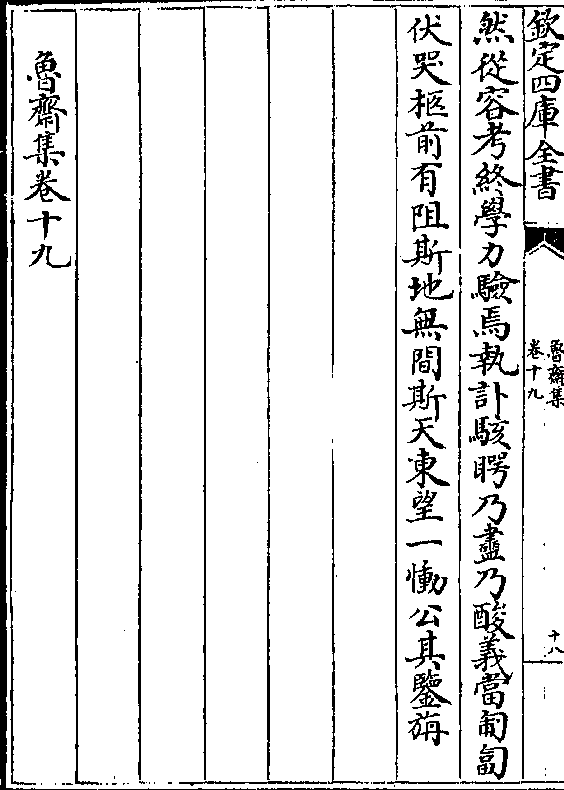 欽定四庫全書
魯齋集
卷十九
十八
然從容考終學力驗焉執訃駭愕乃盡乃酸義當匍匐
伏哭柩前有阻斯地無間斯天東望一慟公其鑒旃
魯齋集卷十九